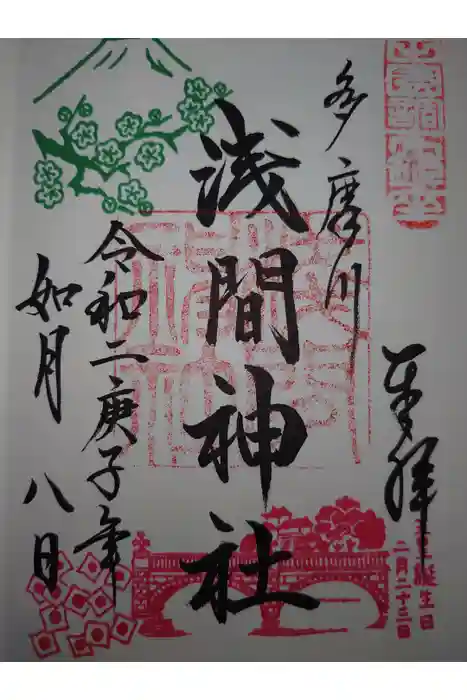 奉拝
天皇誕生日
二月二十三日
多摩川
浅間神社
令和二庚子年
如月 八日